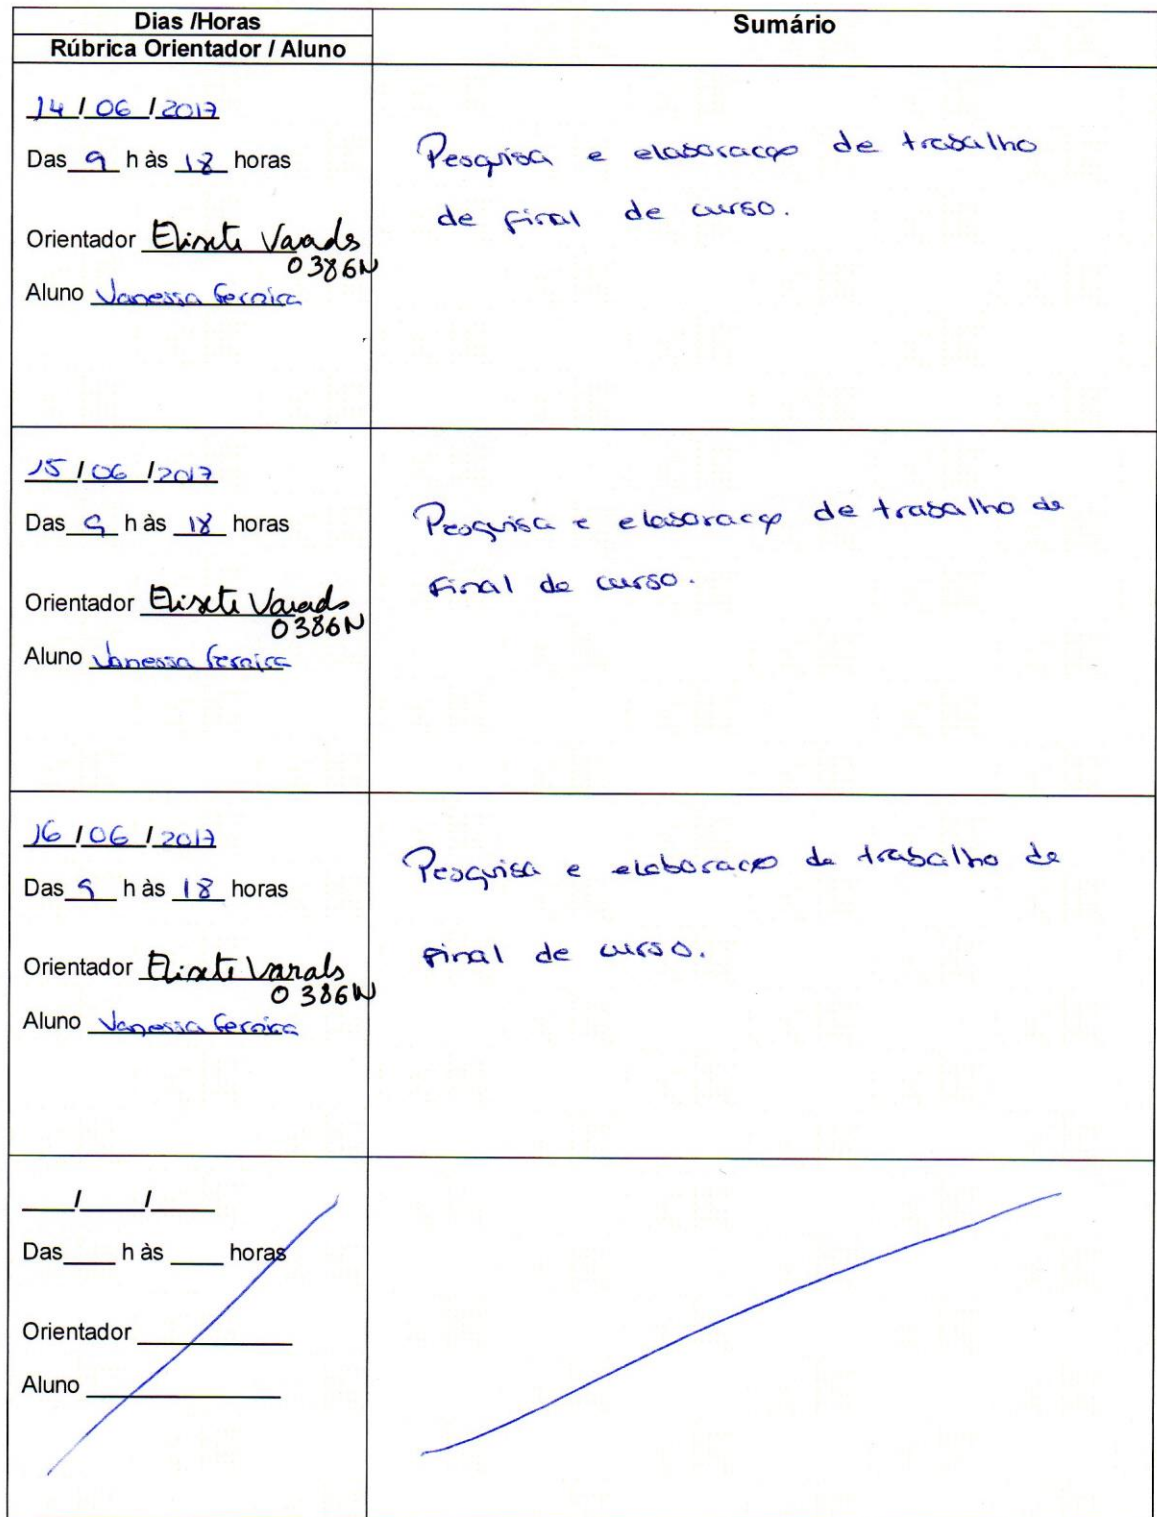 Dias /Horas
Rúbrica Orientador / Aluno
Sumário
14 / 06 / 2017
Das 9 h às 18 horas
Orientador Elisete
0386N
Aluno Vanessa Ferreira
Pesquisa e elaboração de trabalho
de final de curso.
15 / 06 / 2017
Das 9 h às 18 horas
Orientador Elisete
0386N
Aluno Vanessa Ferreira
Pesquisa e elaboração de trabalho de
final de curso.
16 / 06 / 2017
Das 9 h às 18 horas
Orientador Elisete
0386N
Aluno Vanessa Ferreira
Pesquisa e elaboração de trabalho de
final de curso.
___/___/___
Das___ h às ___ horas
Orientador ___
Aluno ___